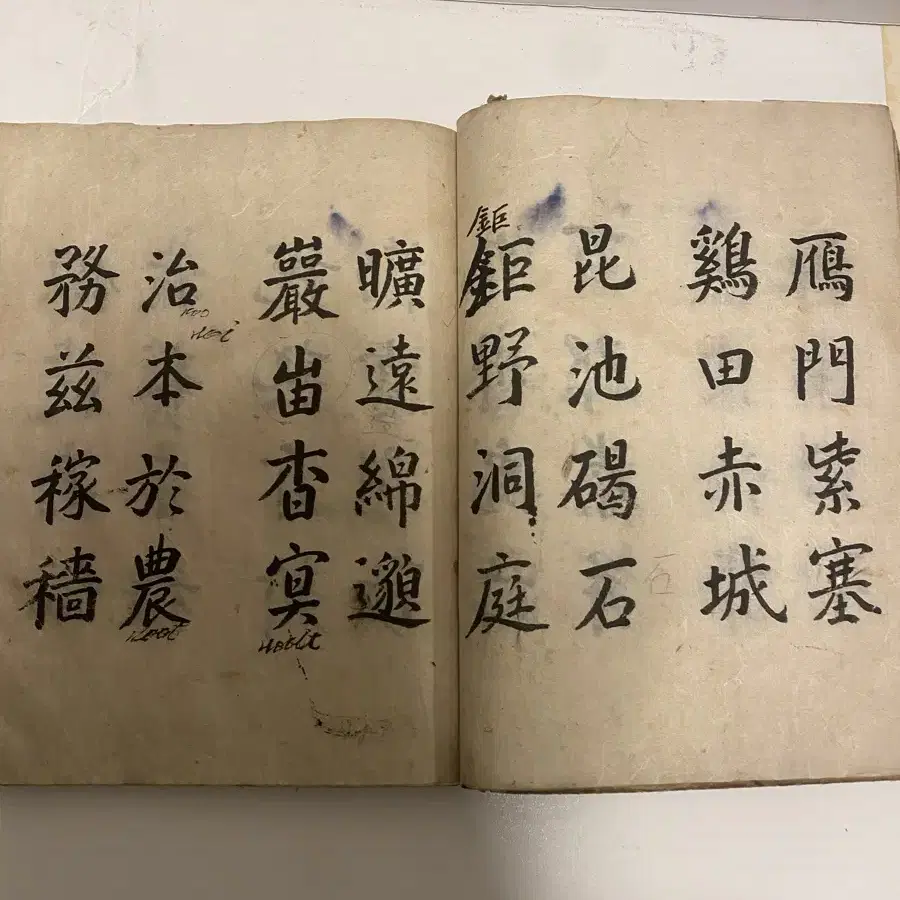 鴈門紫塞
鷄田赤城
昆池碣石
鉅
鉅野洞庭
曠遠綿邈
巖峀杳㝠
治本於農
務玆稼穡
石